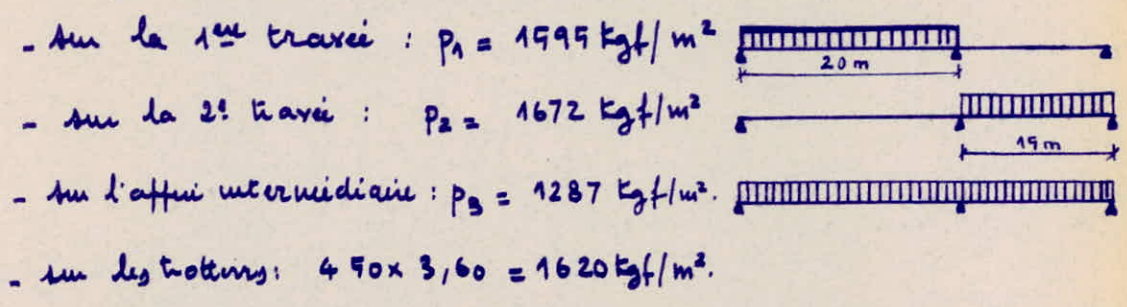 - sur la 1ère travée : p₁ = 1595 kgf/m²
20 m
- sur la 2e travée : p₂ = 1672 kgf/m²
15 m
- sur l'appui intermédiaire : p₃ = 1287 kgf/m².
- sur les trottoirs : 450 x 3,60 = 1620 kgf/m².